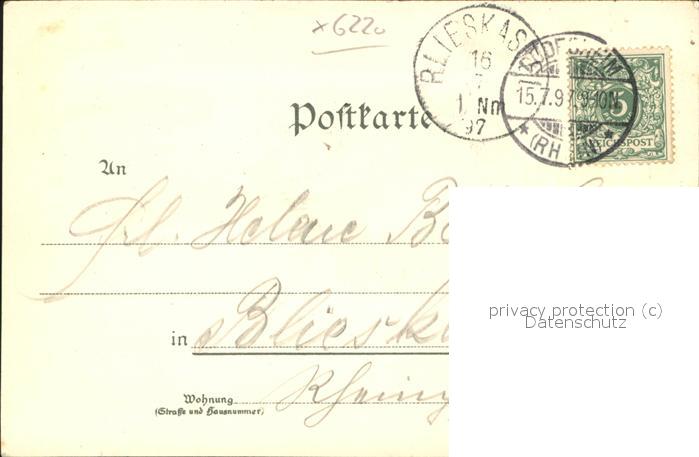 x6220
BLIESKAST
16
7
1. Nm
97
RÜDESHEIM
15.7.97. 9-10N.
* (RH *
5
REICHSPOST
Postkarte
An
Frl. Helene
in Blieskas
Wohnung
(Straße und Hausnummer)
privacy protection (c)
Datenschutz